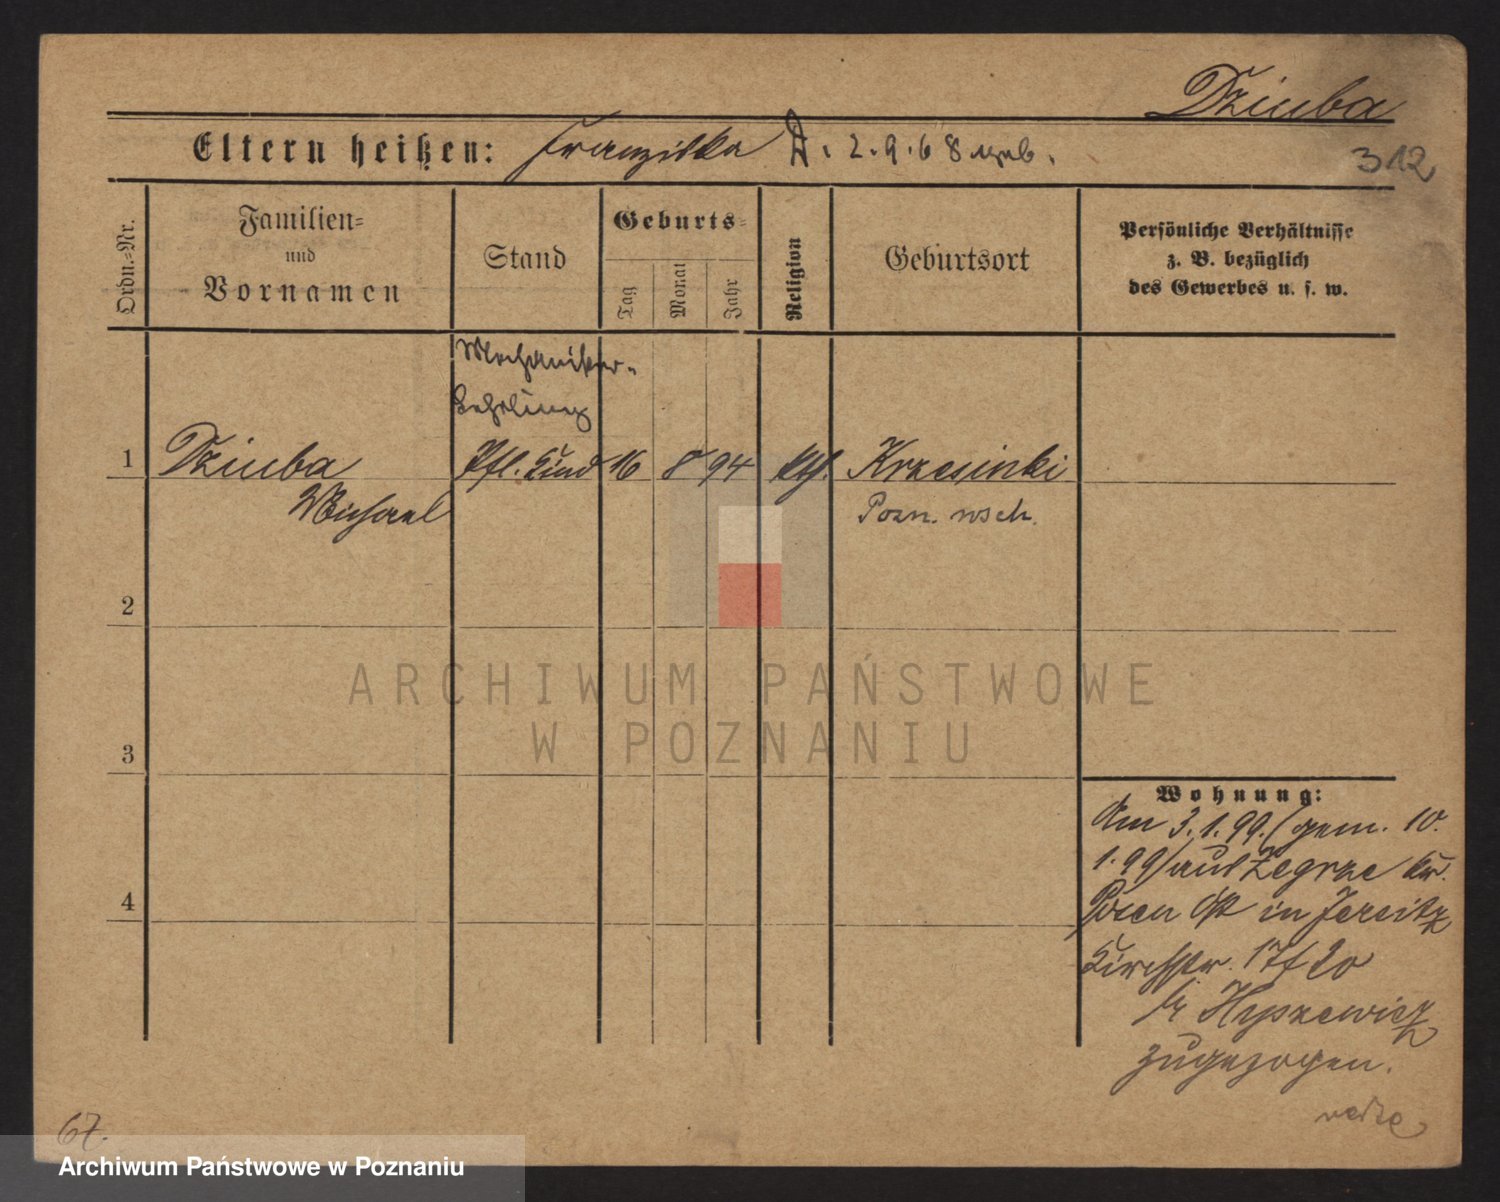 Dziuba
Eltern heißen: Franziska D. 2.9.68 geb.
312
Ordn.-Nr.
Familien-
und
Vornamen
Stand
Geburts-
Tag
Monat
Jahr
Religion
Geburtsort
Persönliche Verhältnisse
z. B. bezüglich
des Gewerbes u. s. w.
Mechaniker-
Lehrling
1 Dziuba Pfl. Kind 16 8 94 kth. Krzesinki
Michael Pozn. wsch.
2
ARCHIWUM PAŃSTWOWE
W POZNANIU
3
Wohnung:
Am 3.1.99. (gem. 10.
1.99) aus Zegrze Kr.
Posen Ost in Jersitz
Kirchstr. 17/20
b/ Hyszewicz
zugezogen.
4
67.
Archiwum Państwowe w Poznaniu